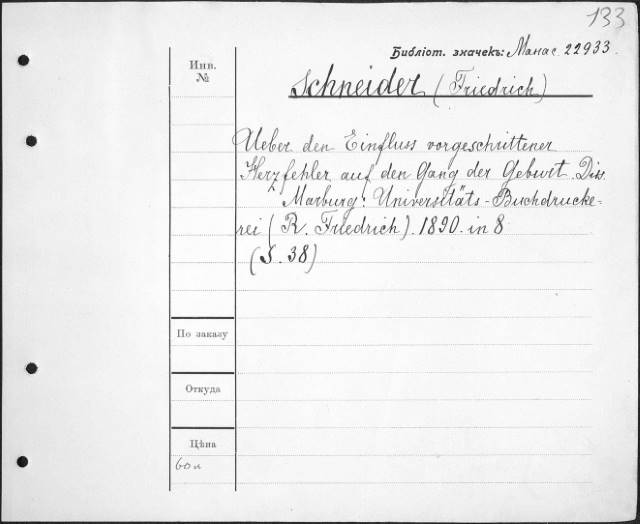 133
Библіот. значекъ: Манас. 22933.
Инв.
№
Schneider (Friedrich)
Ueber den Einfluss vorgeschrittener
Herzfehler auf den Gang der Geburt. Dis.
Marburg: Universitäts-Buchdrucke-
rei (R. Friedrich). 1890. in 8
(S. 38)
По заказу
Откуда
Цѣна